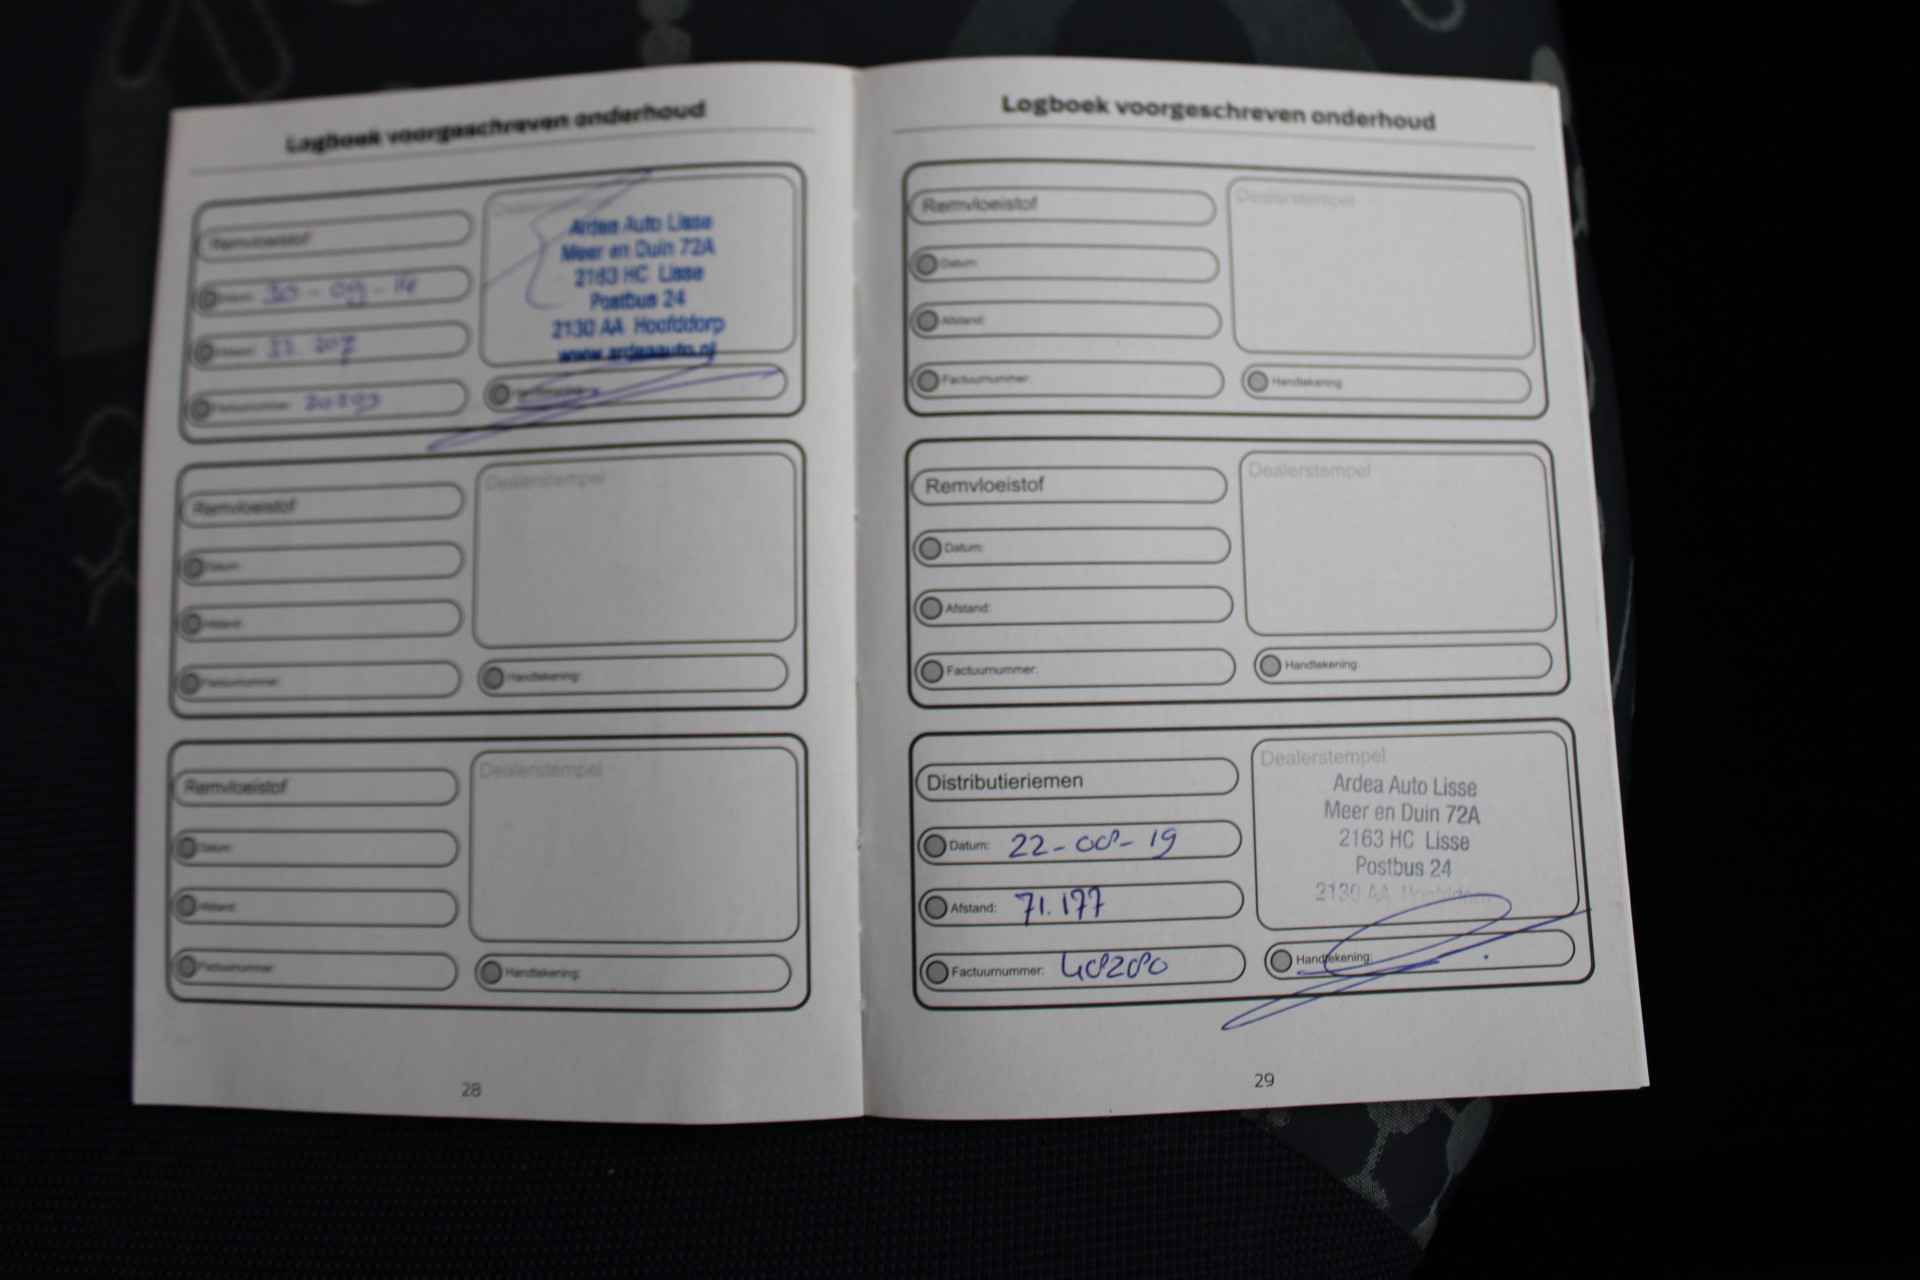 Logboek voorgeschreven onderhoud
Remvloeistof
Dealerstempel
Ardea Auto Lisse
Meer en Duin 72A
2163 HC Lisse
Postbus 24
2130 AA Hoofddorp
www.ardeaauto.nl
Datum: 30-09-14
Afstand:
Factuurnummer:
Handtekening:
Remvloeistof
Dealerstempel
Datum:
Afstand:
Factuurnummer:
Handtekening:
Remvloeistof
Dealerstempel
Datum:
Afstand:
Factuurnummer:
Handtekening:
28
Logboek voorgeschreven onderhoud
Remvloeistof
Dealerstempel
Datum:
Afstand:
Factuurnummer:
Handtekening:
Remvloeistof
Dealerstempel
Datum:
Afstand:
Factuurnummer:
Handtekening:
Distributieriemen
Dealerstempel
Ardea Auto Lisse
Meer en Duin 72A
2163 HC Lisse
Postbus 24
2130 AA Hoofddorp
Datum: 22-08-19
Afstand: 71.177
Factuurnummer: 48280
Handtekening:
29